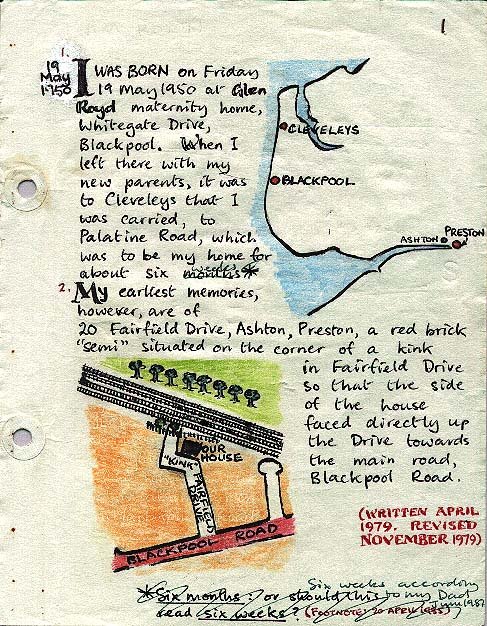 1
1.
19 May 1950
I WAS BORN on Friday
19 May 1950 at Glen
Royd maternity home,
Whitegate Drive,
Blackpool. When I
left there with my
new parents, it was
to Cleveleys that I
was carried, to
Palatine Road, which
was to be my home for
about six months weeks *
CLEVELEYS
BLACKPOOL
ASHTON
PRESTON
2. My earliest memories,
however, are of
20 Fairfield Drive, Ashton, Preston, a red brick
"semi" situated on the corner of a kink
in Fairfield Drive
so that the side
of the house
faced directly up
the Drive towards
the main road,
Blackpool Road.
OUR HOUSE
"KINK"
FAIRFIELD DRIVE
BLACKPOOL ROAD
(WRITTEN APRIL
1979. REVISED
NOVEMBER 1979)
Six weeks according
to my Dad
June 1987
* Six months? or should this
read six weeks? (FOOTNOTE: 20 APRIL 1985)